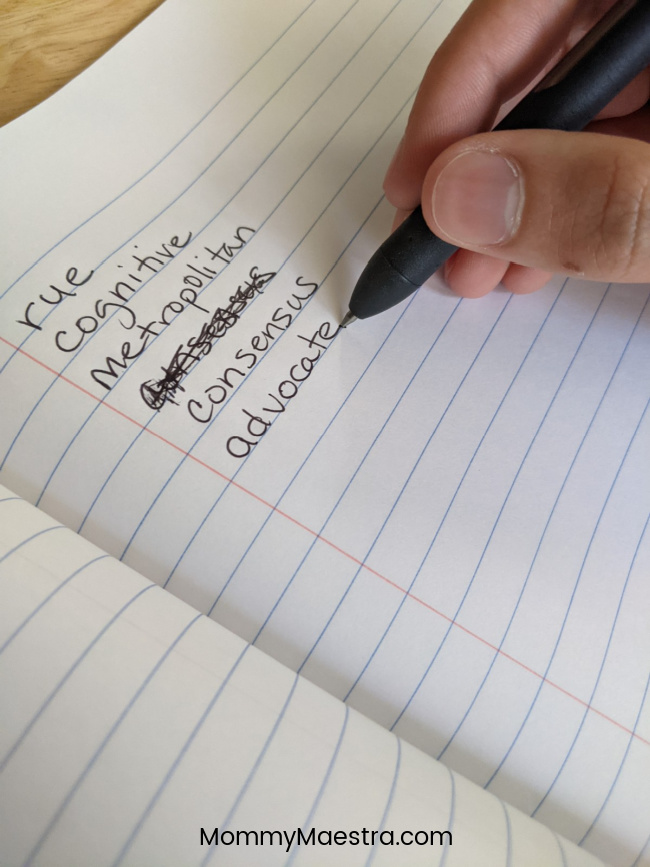 rue
cognitive
metropolitan
consensus
advocate
MommyMaestra.com